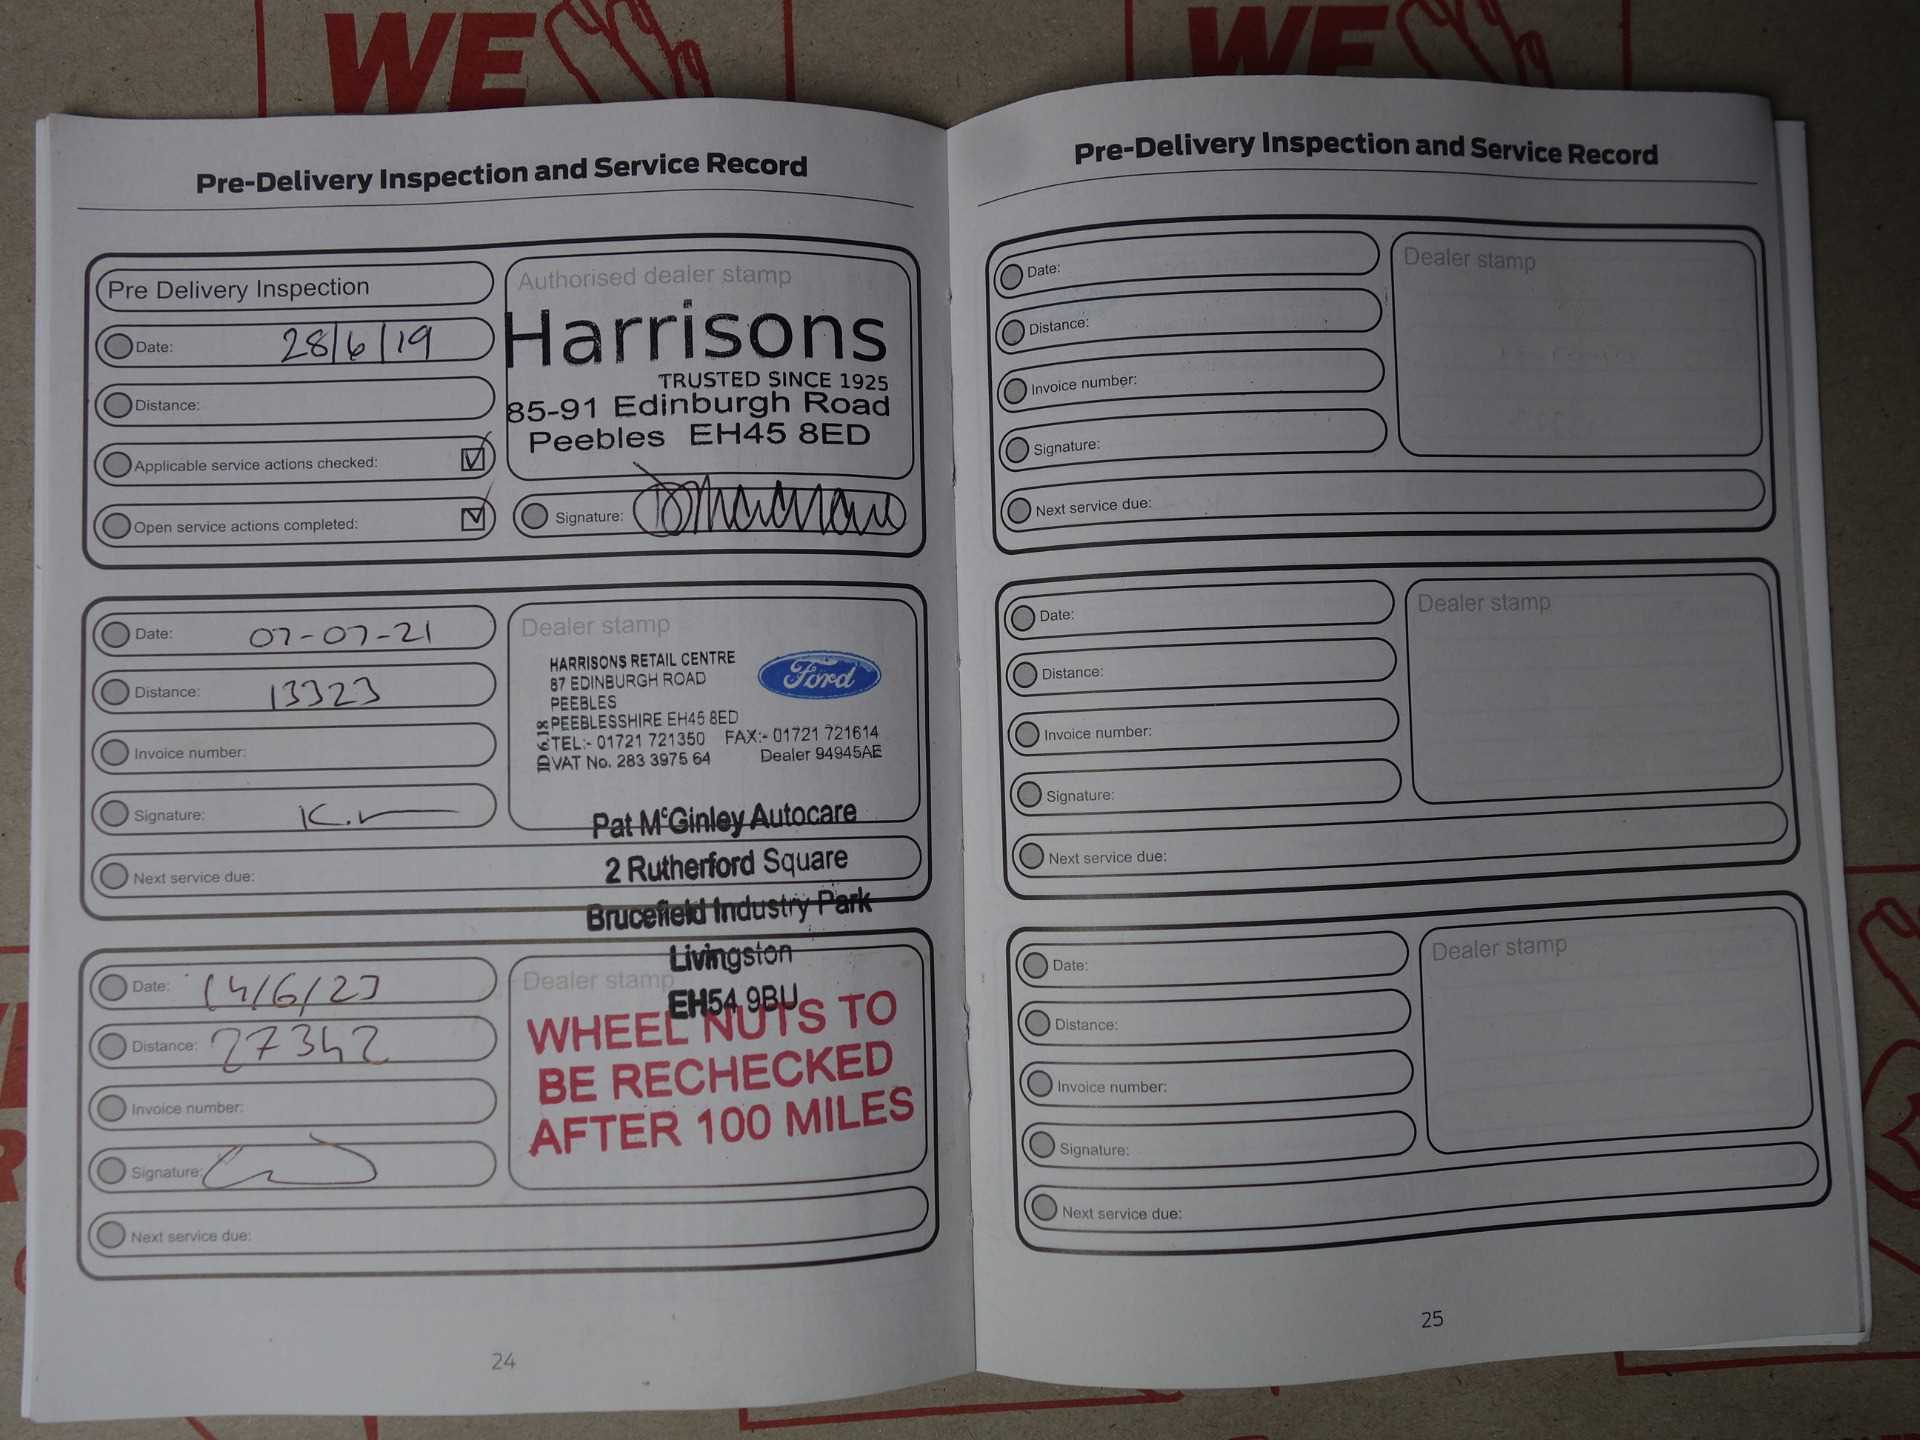 WE
WE
Pre-Delivery Inspection and Service Record
Pre Delivery Inspection
Date: 28/6/19
Distance:
Applicable service actions checked:
Open service actions completed:
Authorised dealer stamp
Harrisons
TRUSTED SINCE 1925
85-91 Edinburgh Road
Peebles EH45 8ED
Signature:
Date: 07-07-21
Distance: 13323
Invoice number:
Signature:
Next service due:
Dealer stamp
HARRISONS RETAIL CENTRE
87 EDINBURGH ROAD
PEEBLES
PEEBLESSHIRE EH45 8ED
TEL:- 01721 721350 FAX:- 01721 721614
VAT No. 283 3975 64 Dealer 94945AE
Ford
Pat McGinley Autocare
2 Rutherford Square
Brucefield Industry Park
Livingston
EH54 9BU
Date: 14/6/23
Distance: 27342
Invoice number:
Signature:
Next service due:
Dealer stamp
WHEEL NUTS TO
BE RECHECKED
AFTER 100 MILES
24
Pre-Delivery Inspection and Service Record
Date:
Distance:
Invoice number:
Signature:
Next service due:
Dealer stamp
Date:
Distance:
Invoice number:
Signature:
Next service due:
Dealer stamp
Date:
Distance:
Invoice number:
Signature:
Next service due:
Dealer stamp
25